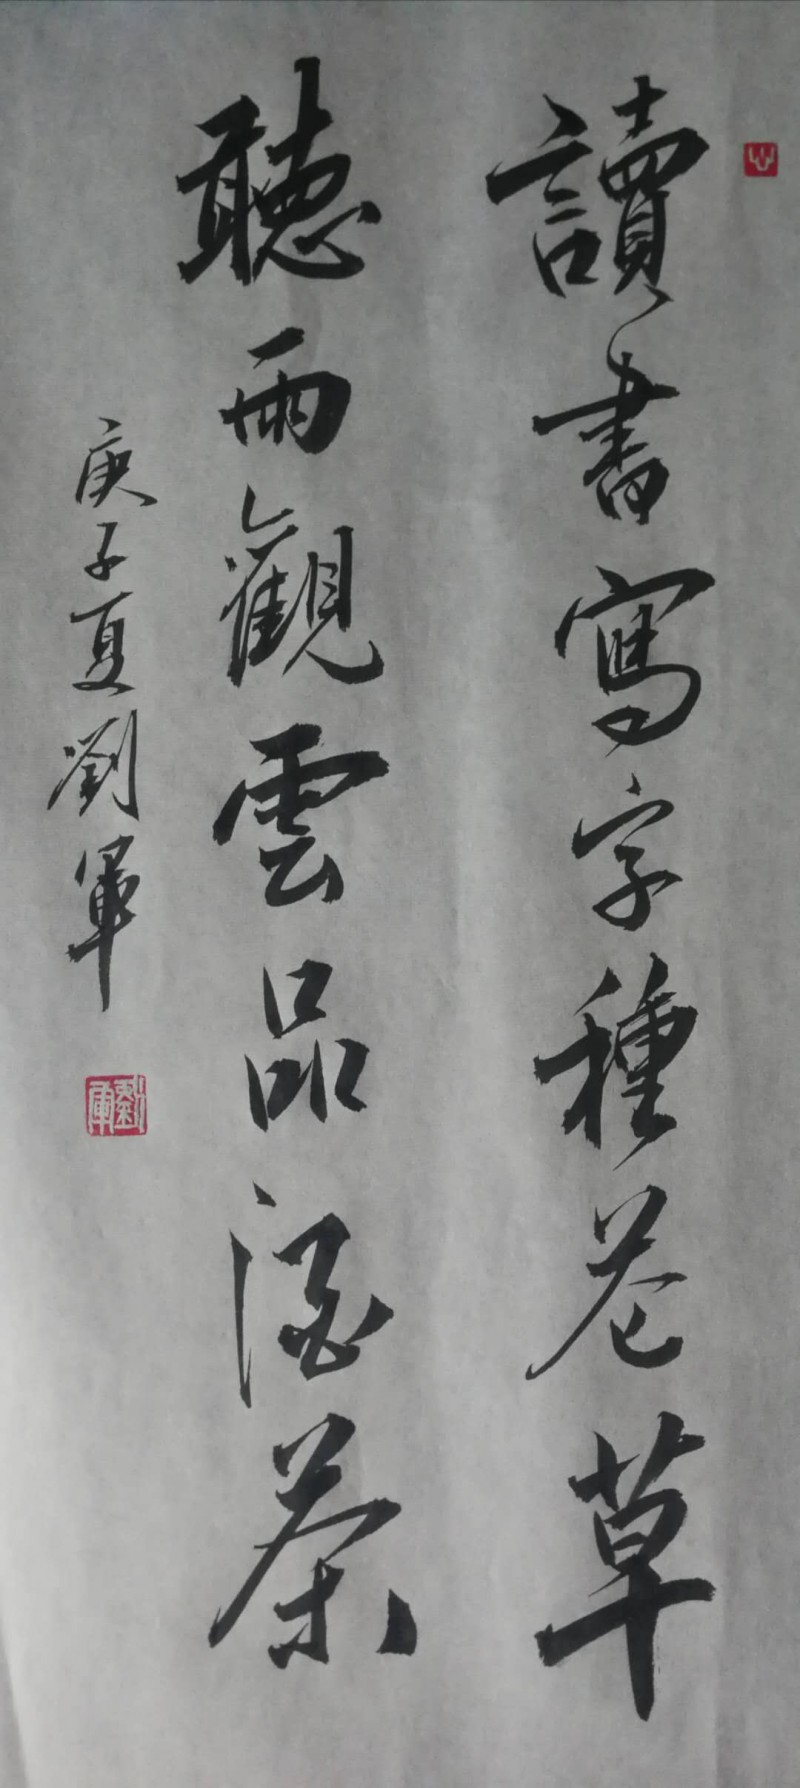 讀書寫字種花草
聽雨觀雲品酒茶
庚子夏劉軍
劉軍